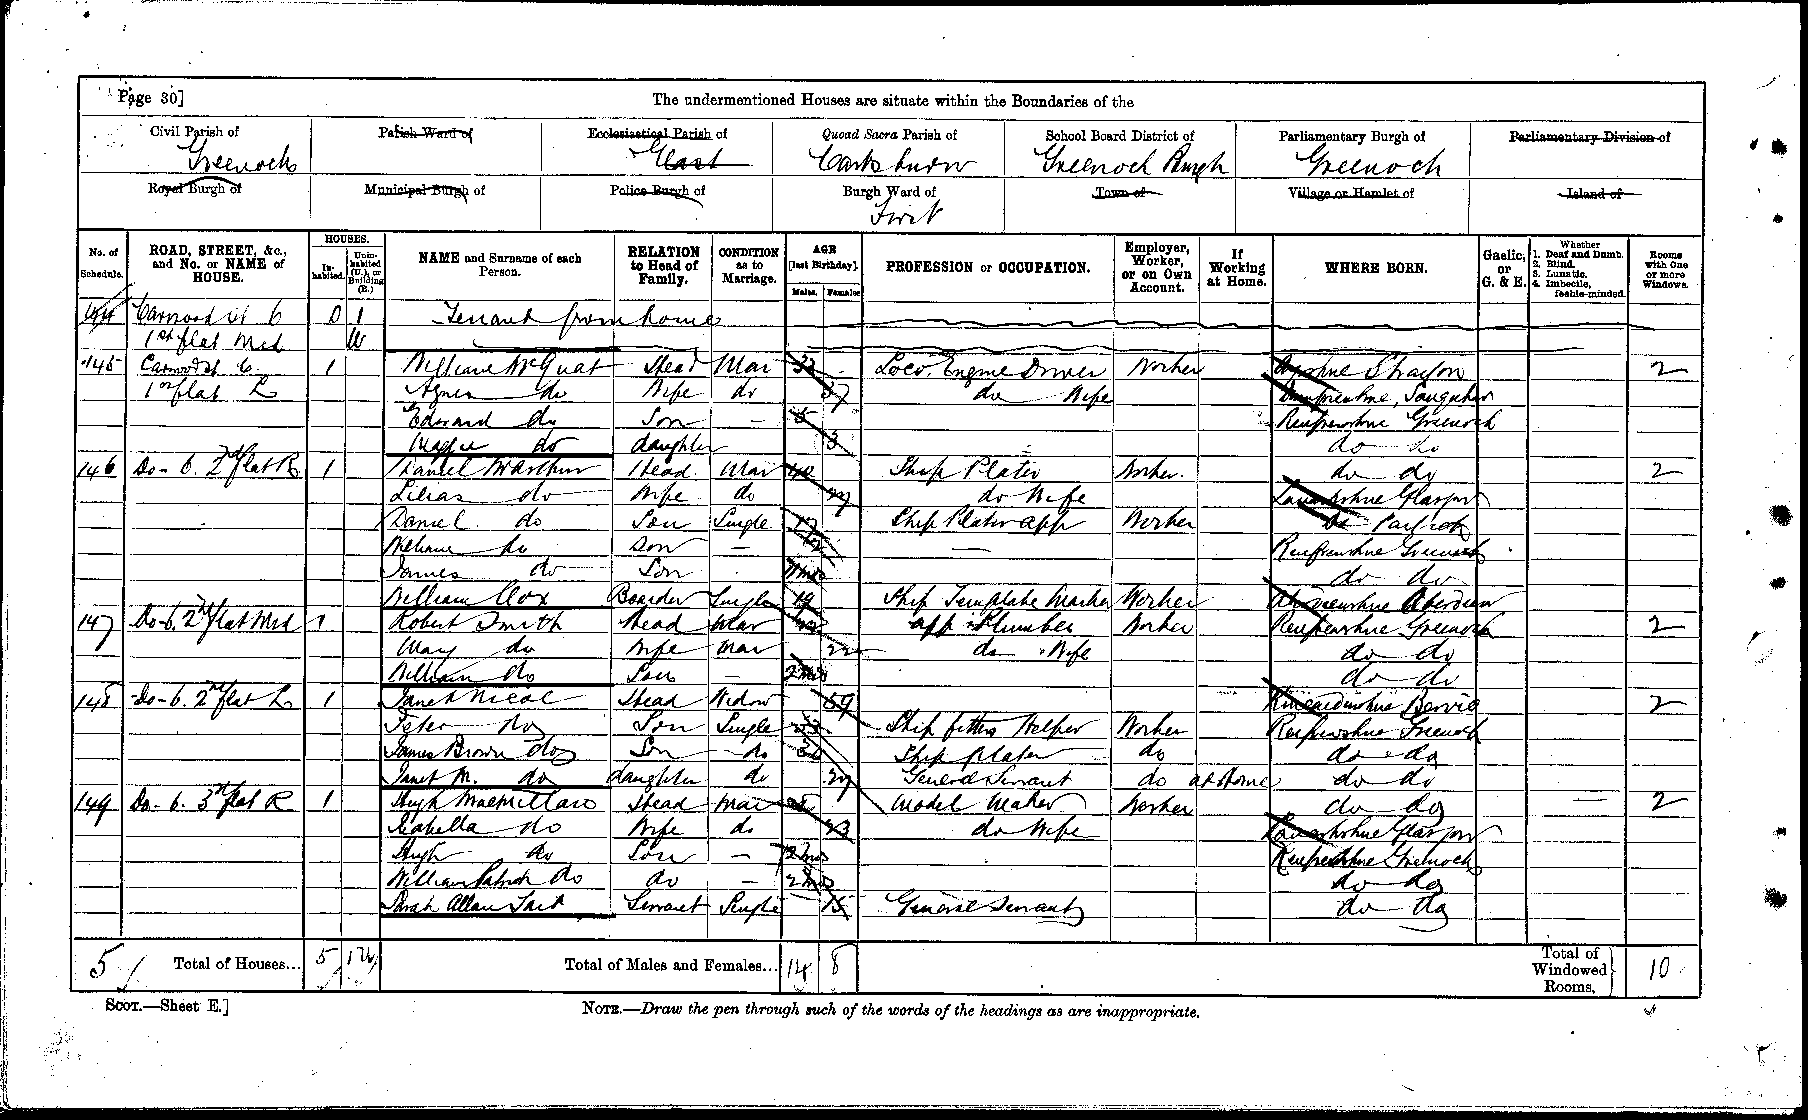 Page 30]
The undermentioned Houses are situate within the Boundaries of the
Civil Parish of Parish Ward of Ecclesiastical Parish of Quoad Sacra Parish of School Board District of Parliamentary Burgh of Parliamentary Division of
Greenock East Cartsburn Greenock Burgh Greenock
Royal Burgh of Municipal Burgh of Police Burgh of Burgh Ward of Town of Village or Hamlet of Island of
First
No. of Schedule. ROAD, STREET, &c., and No. or NAME of HOUSE. HOUSES. Inhabited. Uninhabited (U.), or Building (B.) NAME and Surname of each Person. RELATION to Head of Family. CONDITION as to Marriage. AGE [last Birthday]. Males. Females. PROFESSION or OCCUPATION. Employer, Worker, or on Own Account. If Working at Home. WHERE BORN. Gaelic, or G. & E. Whether 1. Deaf and Dumb. 2. Blind. 3. Lunatic. 4. Imbecile, feeble-minded. Rooms with One or more Windows.
144 Carwood St 6 0 1 Tenant from home
1st flat Mid U
145 Carwood St. 6 1 William McQuat Head Mar 32 Loco. Engine Driver Worker Ayrshire Straiton 2
1st flat L Agnes do Wife do 37 do Wife Dumfriesshire, Sanquhar
Edward do Son 5 Renfrewshire Greenock
Maggie do daughter 3 do do
146 Do - 6. 2nd flat R 1 Daniel McArthur Head Mar Ship Plater Worker. do do 2
Lilias do Wife do do Wife Lanarkshire Glasgow
Daniel do Son Single 17 Ship Plater app Worker do Partick
William do Son Renfrewshire Greenock
James do Son do do
William Cox Boarder Single 19 Ship Template Maker Worker Aberdeenshire Aberdeen
147 Do - 6. 2nd flat Mid 1 Robert Smith Head Mar app Plumber Worker Renfrewshire Greenock 2
Mary do Wife Mar 22 do Wife do do
William do Son 2 mos do do
148 Do - 6. 2nd flat L 1 Janet Nicol Head Widow 59 Kincardineshire Bervie 2
Peter do Son Single 33 Ship fitters Helper Worker Renfrewshire Greenock
James Brown do Son do Ship Plater do do do
Janet M. do daughter do 27 General Servant do at Home do do
149 Do - 6. 3rd flat R 1 Hugh Macmillan Head Mar Model Maker Worker do do 2
Isabella do Wife do 23 do Wife Lanarkshire Glasgow
Hugh do Son 2 mos Renfrewshire Greenock
William Patrick do do 2 mos do do
Sarah Allan Tait Servant Single 15 General Servant do do
5 Total of Houses... 5 1 U Total of Males and Females... 14 8 Total of Windowed Rooms, 10
SCOT.—Sheet E.]
NOTE.—Draw the pen through such of the words of the headings as are inappropriate.